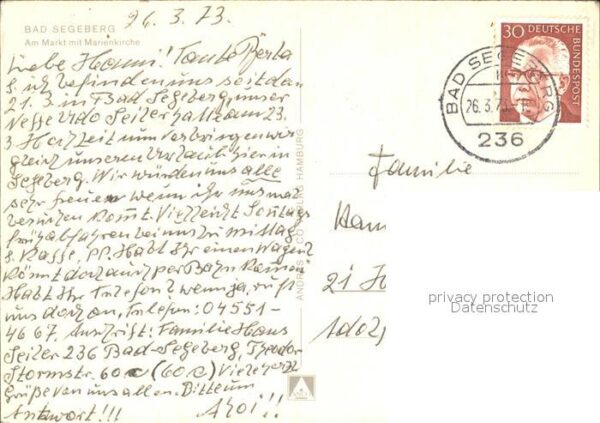 26.3.73.
BAD SEGEBERG
Am Markt mit Marienkirche
Liebe Hanni! Tante Berta
& ich befinden uns seit dan
21.3. in Bad Segeberg, unser
Neffe Udo Seiler hatte am 23.
3. Hochzeit nun verbringen wir
gleich unseren Urlaub hier in
Segeberg. Wir würden uns alle
sehr freuen wenn ihr uns mal
besuchen komt. Vielleicht Sontags
früh abfahren bei uns zu mittag
& Kaffe, pp. Habt Ihr einen Wagen?
Könnt doch auch per Bahn kommen
Habt Ihr Telefon? wenn ja, ruft
uns doch an, Telefon: 04551-
4667. Anschrift: Familie Hans
Seiler 236 Bad-Segeberg, Theodor
Stormstr. 60c (60c) Viele herzl
Grüße von uns allen. Bitte um
Antwort!!! Ahoi!!
30 DEUTSCHE BUNDESPOST
BAD SEGEBERG
26.3.73
236
Familie
21 H
Adolp
HAMBURG
privacy protection
Datenschutz